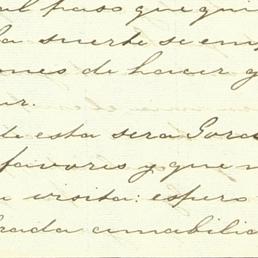 paso que
la suerte se em
ones de hacer y
ur.
de esta sera Gora
favores y que
visita: espero
rada amabili